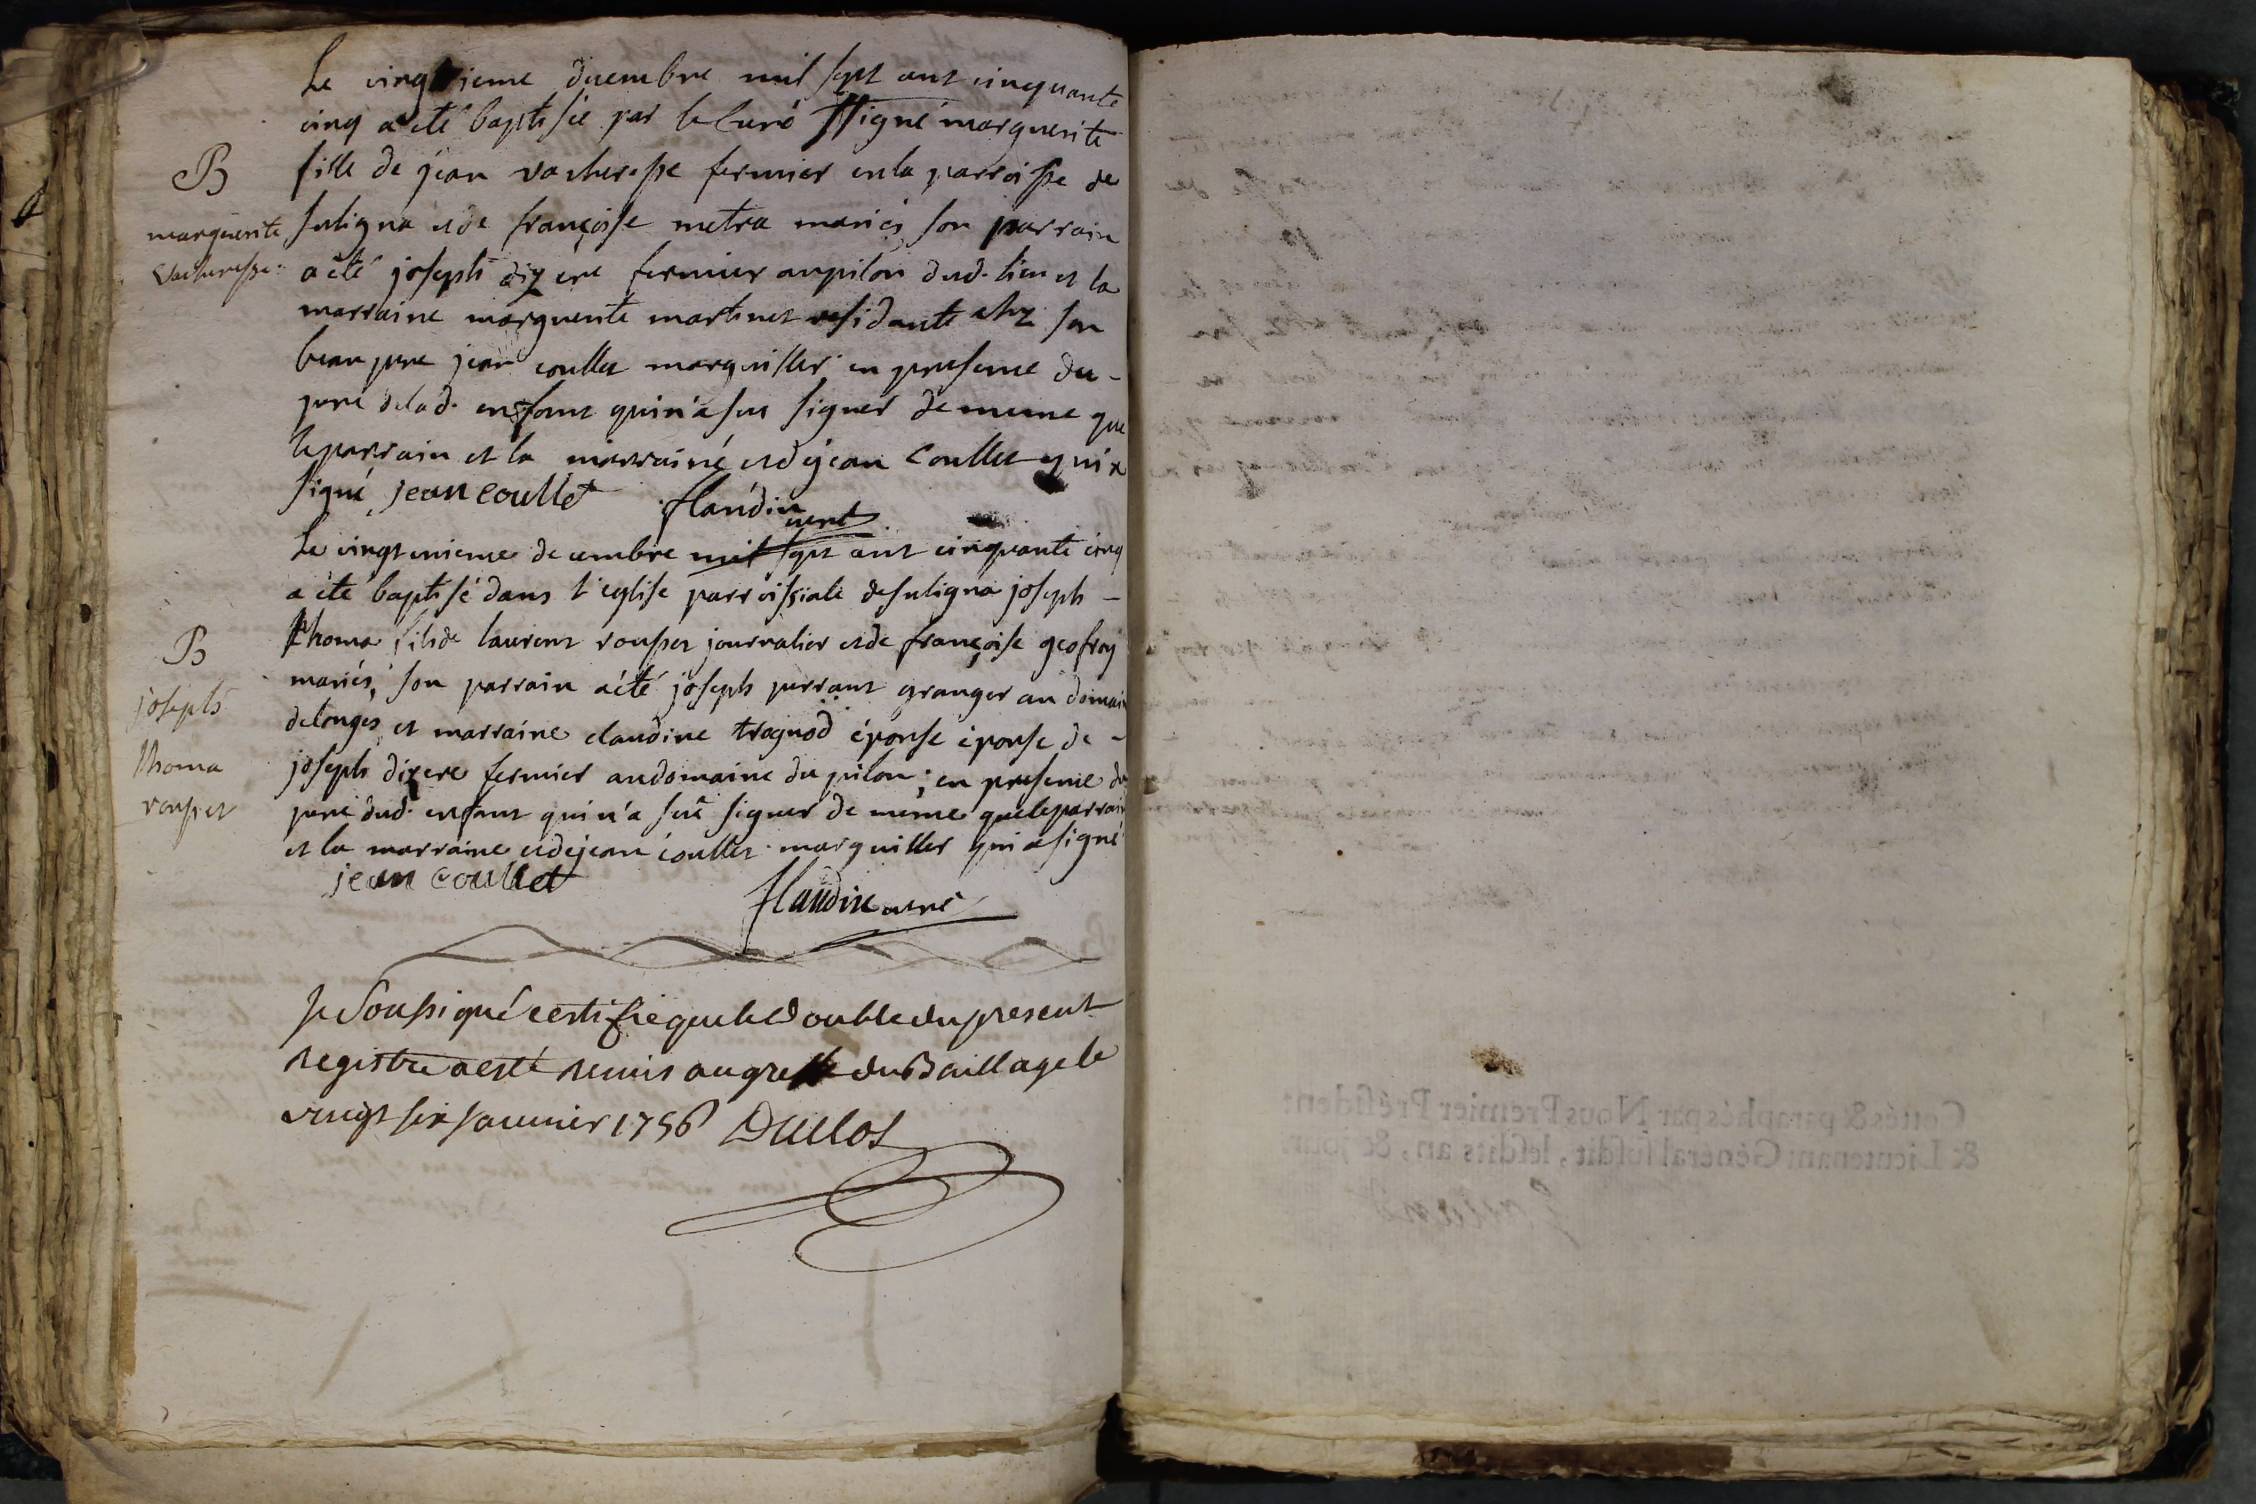 Le vingtieme decembre mil sept cent cinquante
cinq a eté baptisée par le curé ssigné marguerite
B
fille de jean vacheresse fermier en la parroisse de
marguerite
suligna et de françoise metra mariés, son parrain
vacheresse.
a eté joseph dizere fermier au pilon dud. lieu et la
marraine marguerite martinet residante chez son
beau pere jean coullet marguiller en presence du -
pere de lad. enfant qui n'a sçu signer de meme que
le parrain et la marraine et de jean Coullet qui a
signé jean coullet flandin curé
Le vingt unieme decembre mil sept cent cinquante cinq
a eté baptisé dans l'eglise parroissiale de suligna joseph -
B
thoma fils de laurent rousset journalier et de françoise geofray
joseph
mariés, son parrain a été joseph perrant granger au domaine
de longes et marraine claudine tragnod éponse éponse de -
thoma
joseph dizere fermier au domaine du pilon; en presence du
rousset
pere dud. enfant qui n'a sçu signer de meme que le parrain
et la marraine et de jean coullet marguiller qui a signé
jean coullet
flandin curé
Je Soussigné certifie que le double du present
registre a esté remis au greffe du Baillage le
vingt six janvier 1756 Duclos
Cottés & paraphés par Nous Premier Président
& Lieutenant Général susdit, lesdits an, & jour